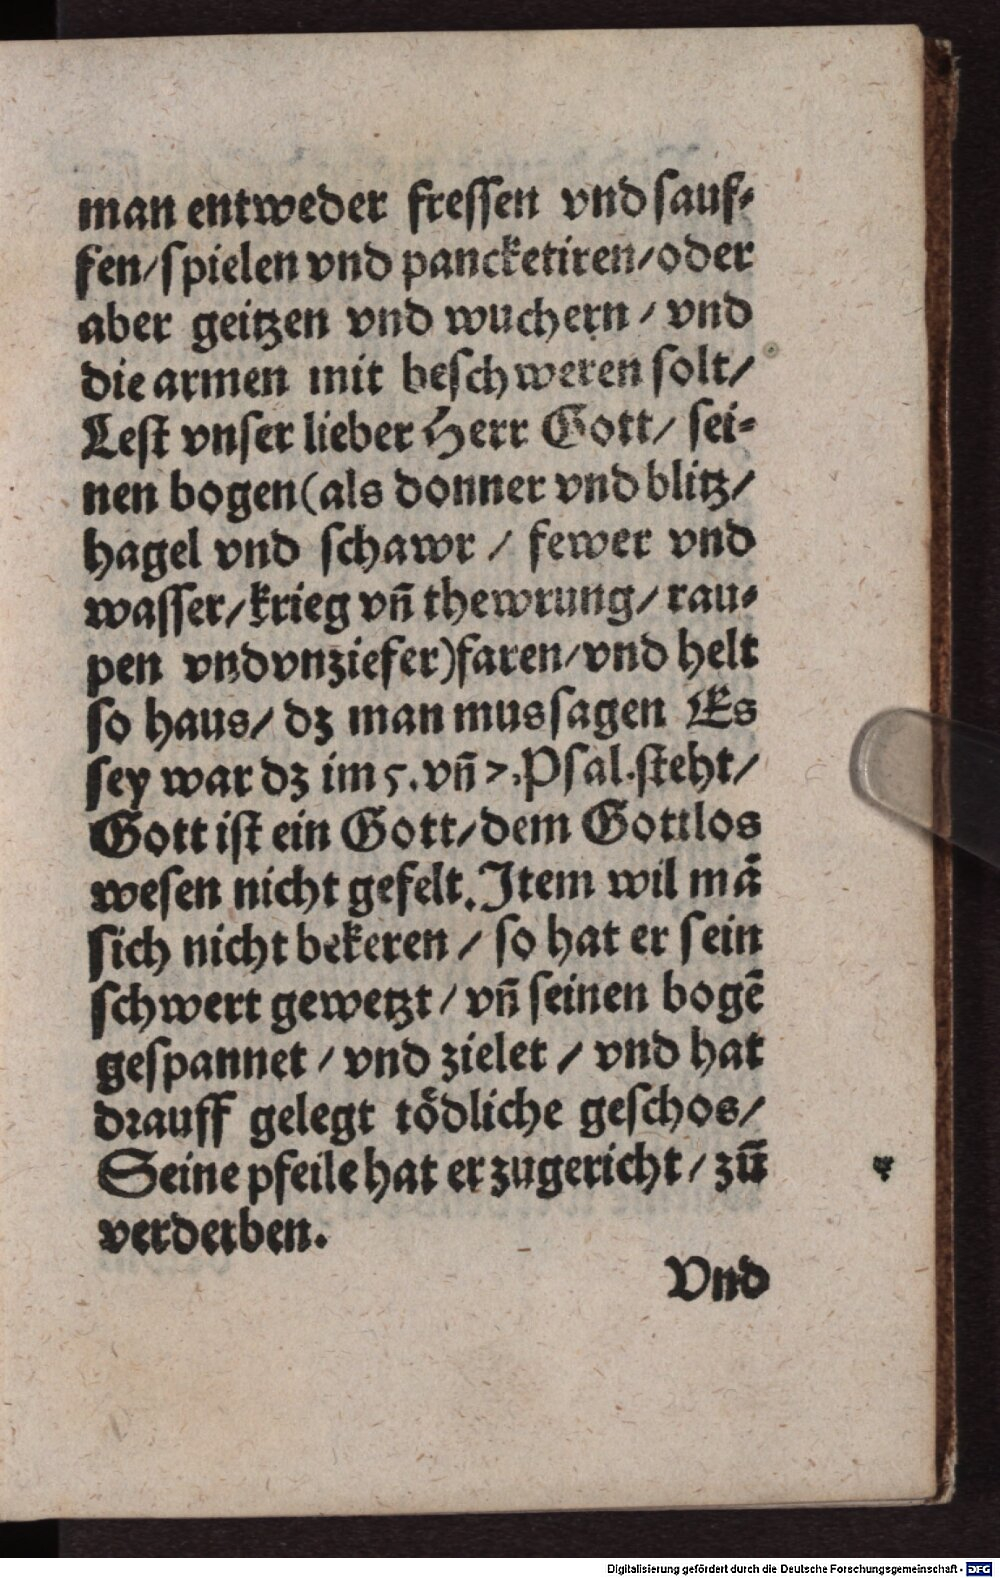 man entweder fressen vnd sauf-
fen/spielen vnd pancketiren/oder
aber geitzen vnd wuchern / vnd
die armen mit beschweren solt/
Lest vnser lieber Herr Gott/ sei-
nen bogen (als donner vnd blitz/
hagel vnd schawr / fewer vnd
wasser/krieg vñ thewrung/ rau-
pen vnd vnziefer) faren/vnd helt
so haus/ dz man mus sagen Es
sey war dz im 5. vñ 7. Psal. steht/
Gott ist ein Gott/dem Gottlos
wesen nicht gefelt. Item wil mā
sich nicht bekeren / so hat er sein
schwert gewetzt / vñ seinen bogē
gespannet / vnd zielet / vnd hat
drauff gelegt toͤdliche geschos/
Seine pfeile hat er zugericht / zū
verderben.
Vnd
Digitalisierung gefördert durch die Deutsche Forschungsgemeinschaft - DFG